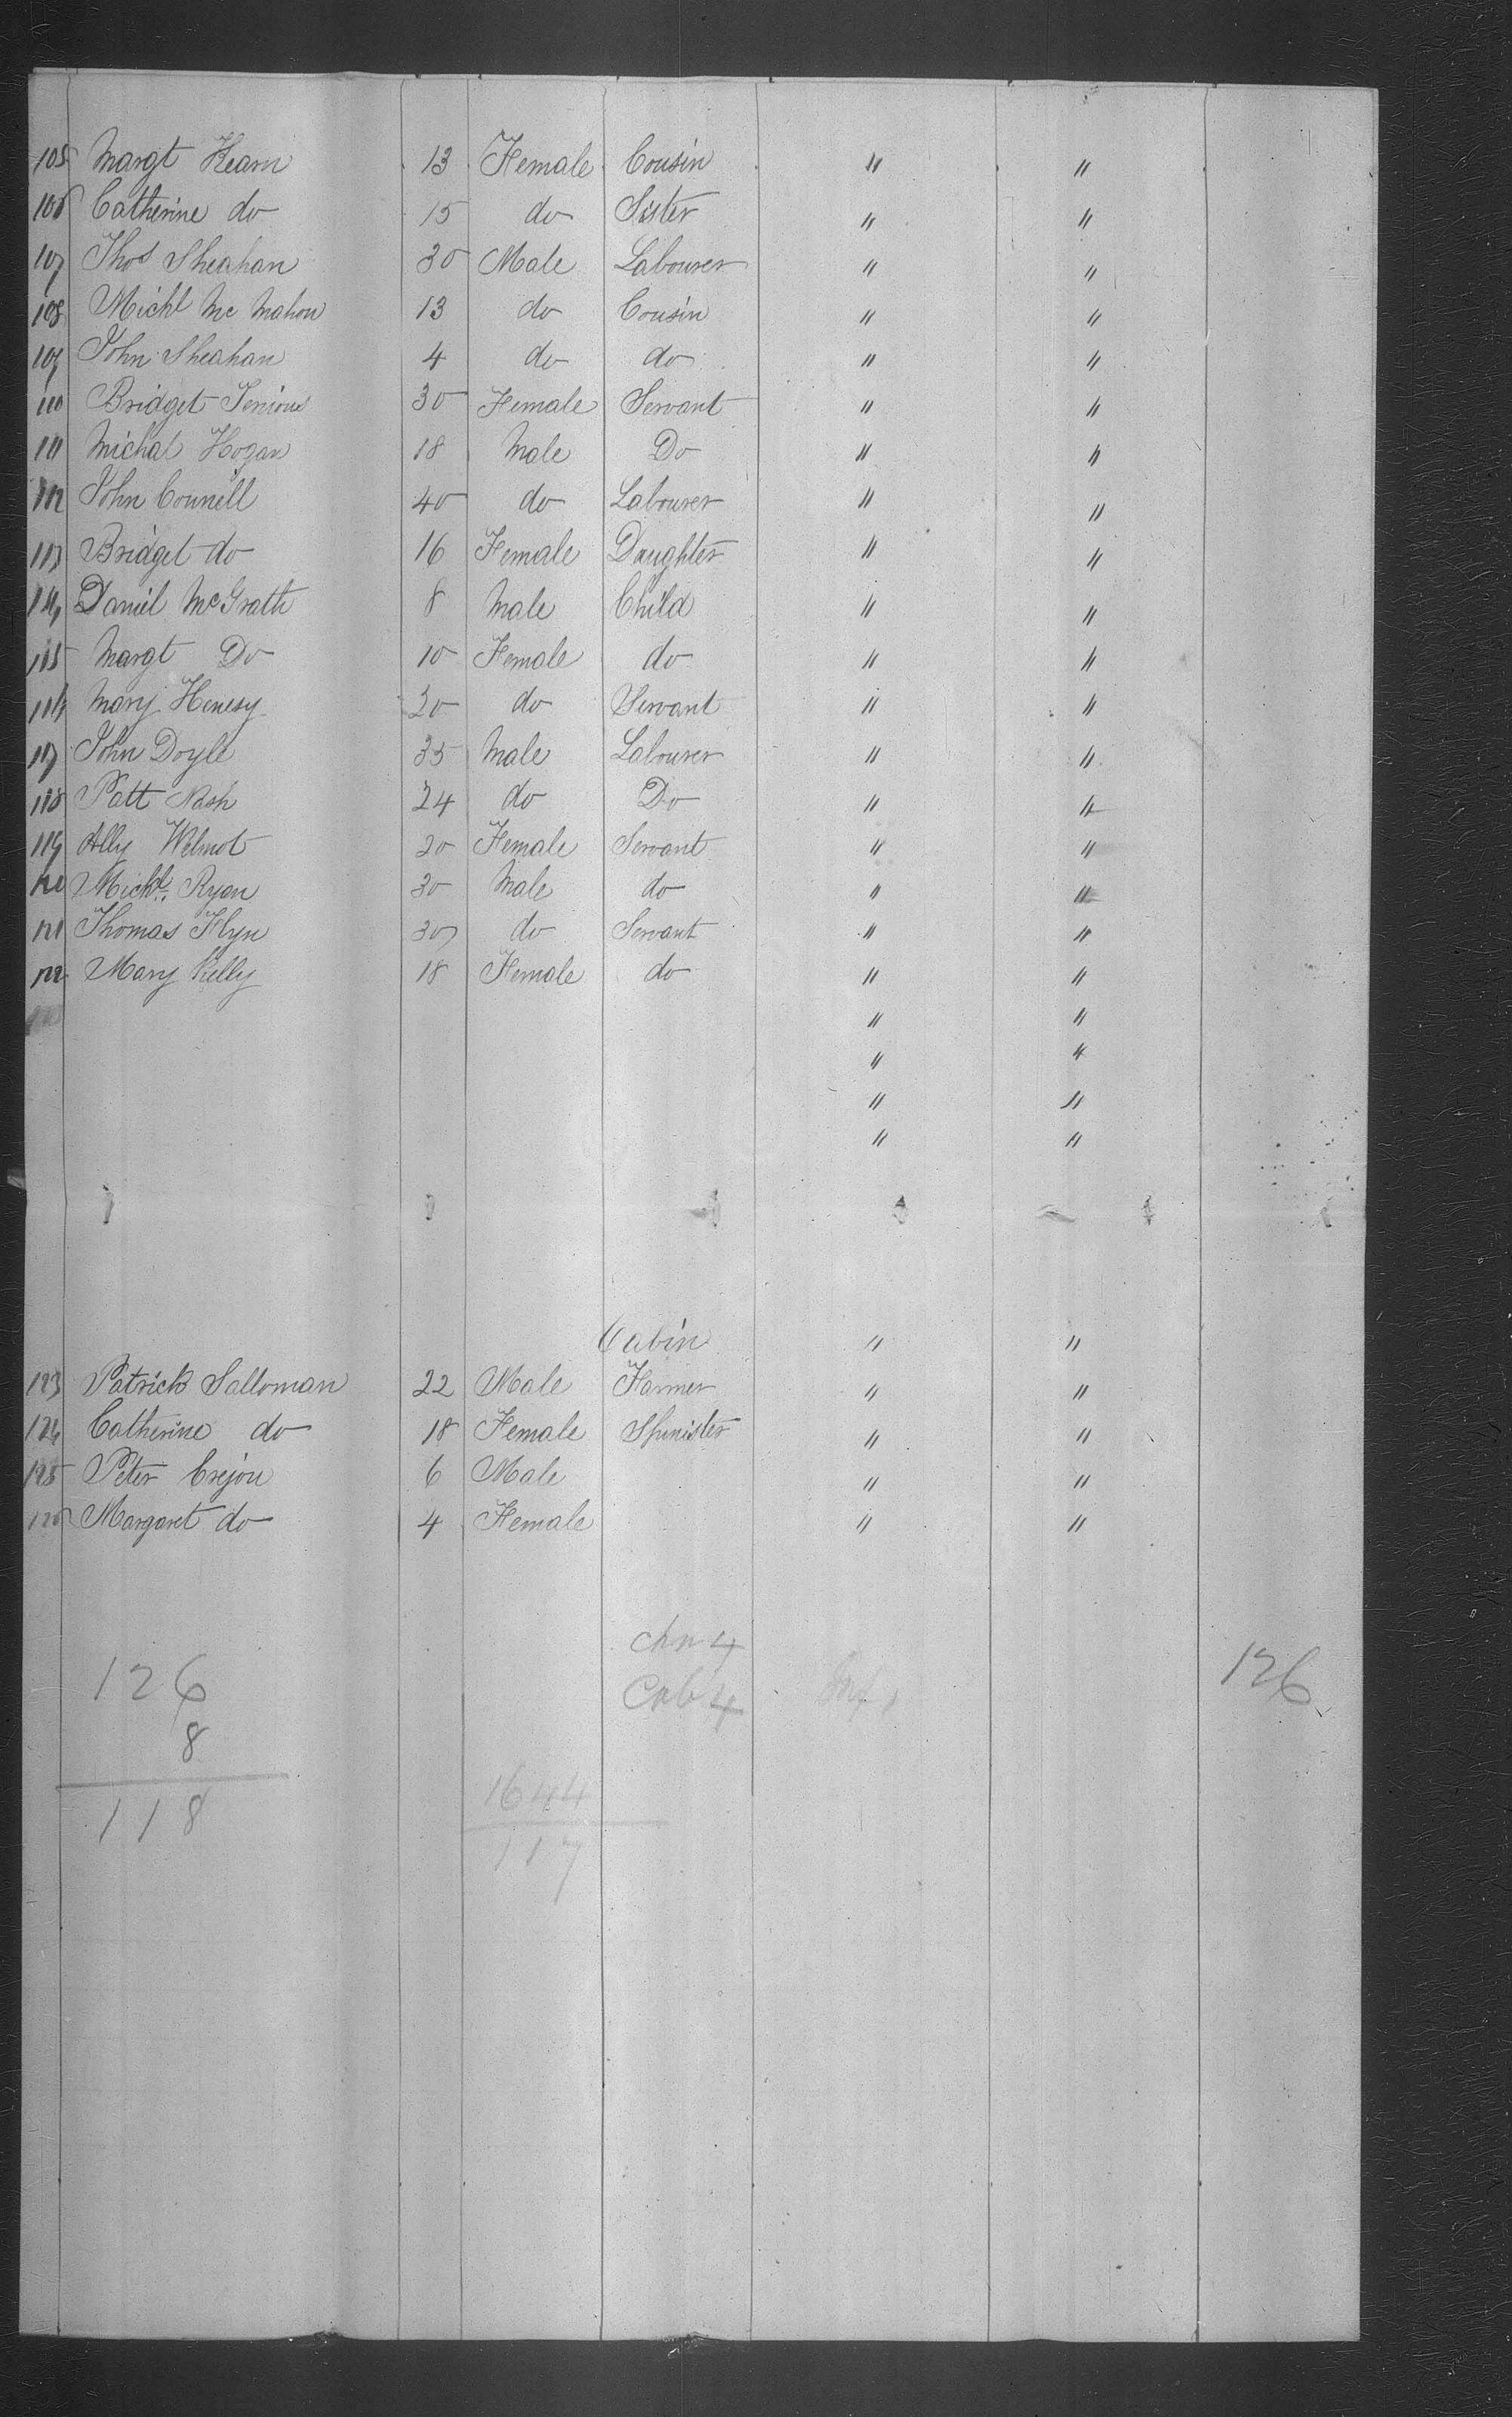 105 Margt Hearn 13 Female Cousin " "
106 Catherine do 15 do Sister " "
107 Thos Sheahan 30 Male Labourer " "
108 Michl Mc Mahon 13 do Cousin " "
109 John Sheahan 4 do do " "
110 Bridget 30 Female Servant " "
111 Michal Hogan 18 Male Do " "
112 John Connell 40 do Labourer " "
113 Bridget do 16 Female Daughter " "
114 Daniel McGrath 8 Male Child " "
115 Margt Do 10 Female do " "
116 Mary Henesy 20 do Servant " "
117 John Doyle 35 Male Labourer " "
118 Patt Nash 24 do Do " "
119 Ally Wilmot 20 Female Servant " "
120 Michl Ryan 30 Male do " "
121 Thomas Flyn 30 do Servant " "
122 Mary Kelly 18 Female do " "
" "
" "
" "
" "
Cabin " "
123 Patrick Salloman 22 Male Farmer " "
124 Catherine do 18 Female Spinister " "
125 Peter Crejon 6 Male " "
126 Margaret do 4 Female " "
chn 4
126 Cab 4 126
8
118 1644
117